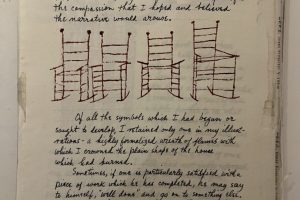 the compassion that I hoped and believed
the narrative would arouse.
Of all the symbols which I had began or
sought to develop, I retained only one in my illust-
rations - a highly formalized wreath of flames with
which I crowned the plain shape of the house
which had burned.
Sometimes, if one is particularly satisfied with a
piece of work which he has completed, he may say
to himself, 'well done' and go on to something else.